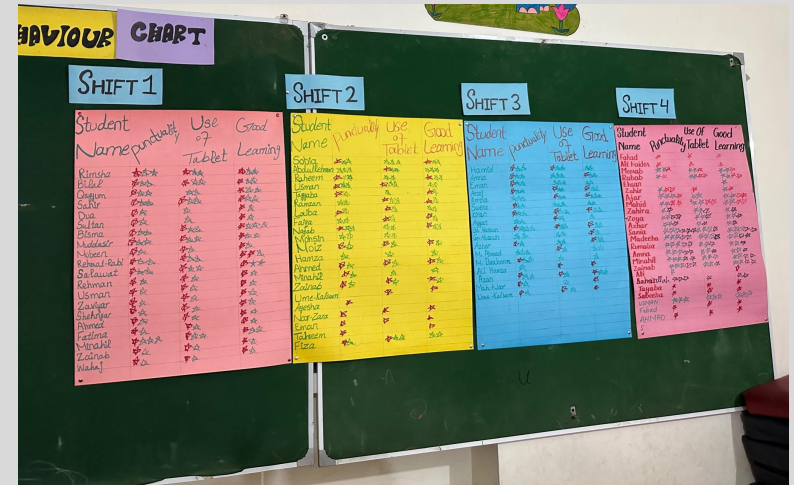 HAVIOUR CHART
SHIFT 1
Student Name Punctuality Use of Tablet Good Learning
Rimsha
Bilal
Qayum
Sahir
Dua
Sultan
Bisma
Muddasir
Mubeen
Salawat
Rehman
Usman
Zaviyar
Shehryar
Ahmed
Fatima
Minahil
Zainab
Wahaj
SHIFT 2
Student Name Punctuality Use of Tablet Good Learning
Abdulrehman
Raheem
Usman
Tayyaba
Ramzan
Laiba
Faiza
Mohsin
Moiz
Hamza
Ahmed
Minahil
Zainab
Ume-Kalsum
Ayesha
Noor-Zara
Eman
Tahreem
Fiza
SHIFT 3
Student Name Punctuality Use of Tablet Good Learning
Hamid
Anna
Eman
M. Ahmad
Ali Hamza
Ume-Kalsum
SHIFT 4
Student Name Punctuality Use Of Tablet Good Learning
Fahad
Rubab
Ehsan
Zahir
Zahira
Zoya
Azhar
Sania
Madeeha
Rumaisa
Amna
Minahil
Zainab
Ali
Tayaba
Sabeeha
Fahad
AHMAD